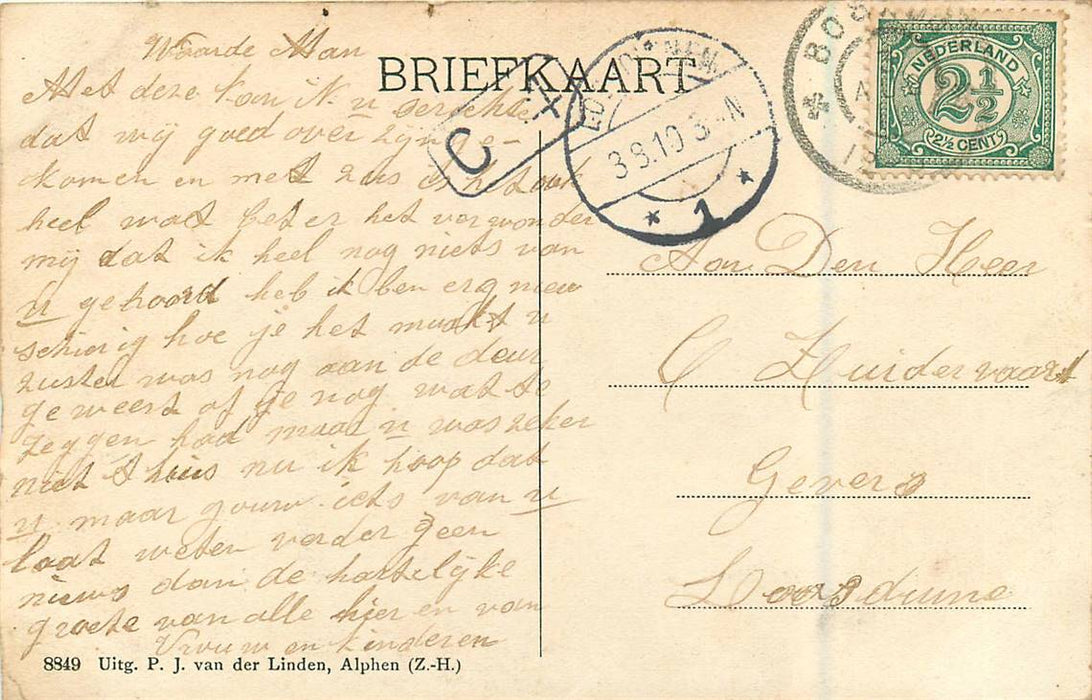 BRIEFKAART
Waarde Man
Met deze kan ik u berichte
dat wij goed over zijn ge-
komen en met zus is het ook
heel wat beter het verwonder
mij dat ik heel nog niets van
u gehoord heb ik ben erg nieuw
schierig hoe je het maakt u
zuster was nog aan de deur
geweest of je nog wat te
zeggen had maar u was zeker
niet thuis nu ik hoop dat
u maar gouw iets van u
laat weten verder geen
nieuws dan de hartelijke
groete van alle hier en van
Vrouw en kinderen
8849 Uitg. P. J. van der Linden, Alphen (Z.-H.)
C
3.8.10 3-N
1
BOS
NEDERLAND
2½
2½ CENT
Aan Den Heer
C Zuidervaart
Gevers
Loosduine